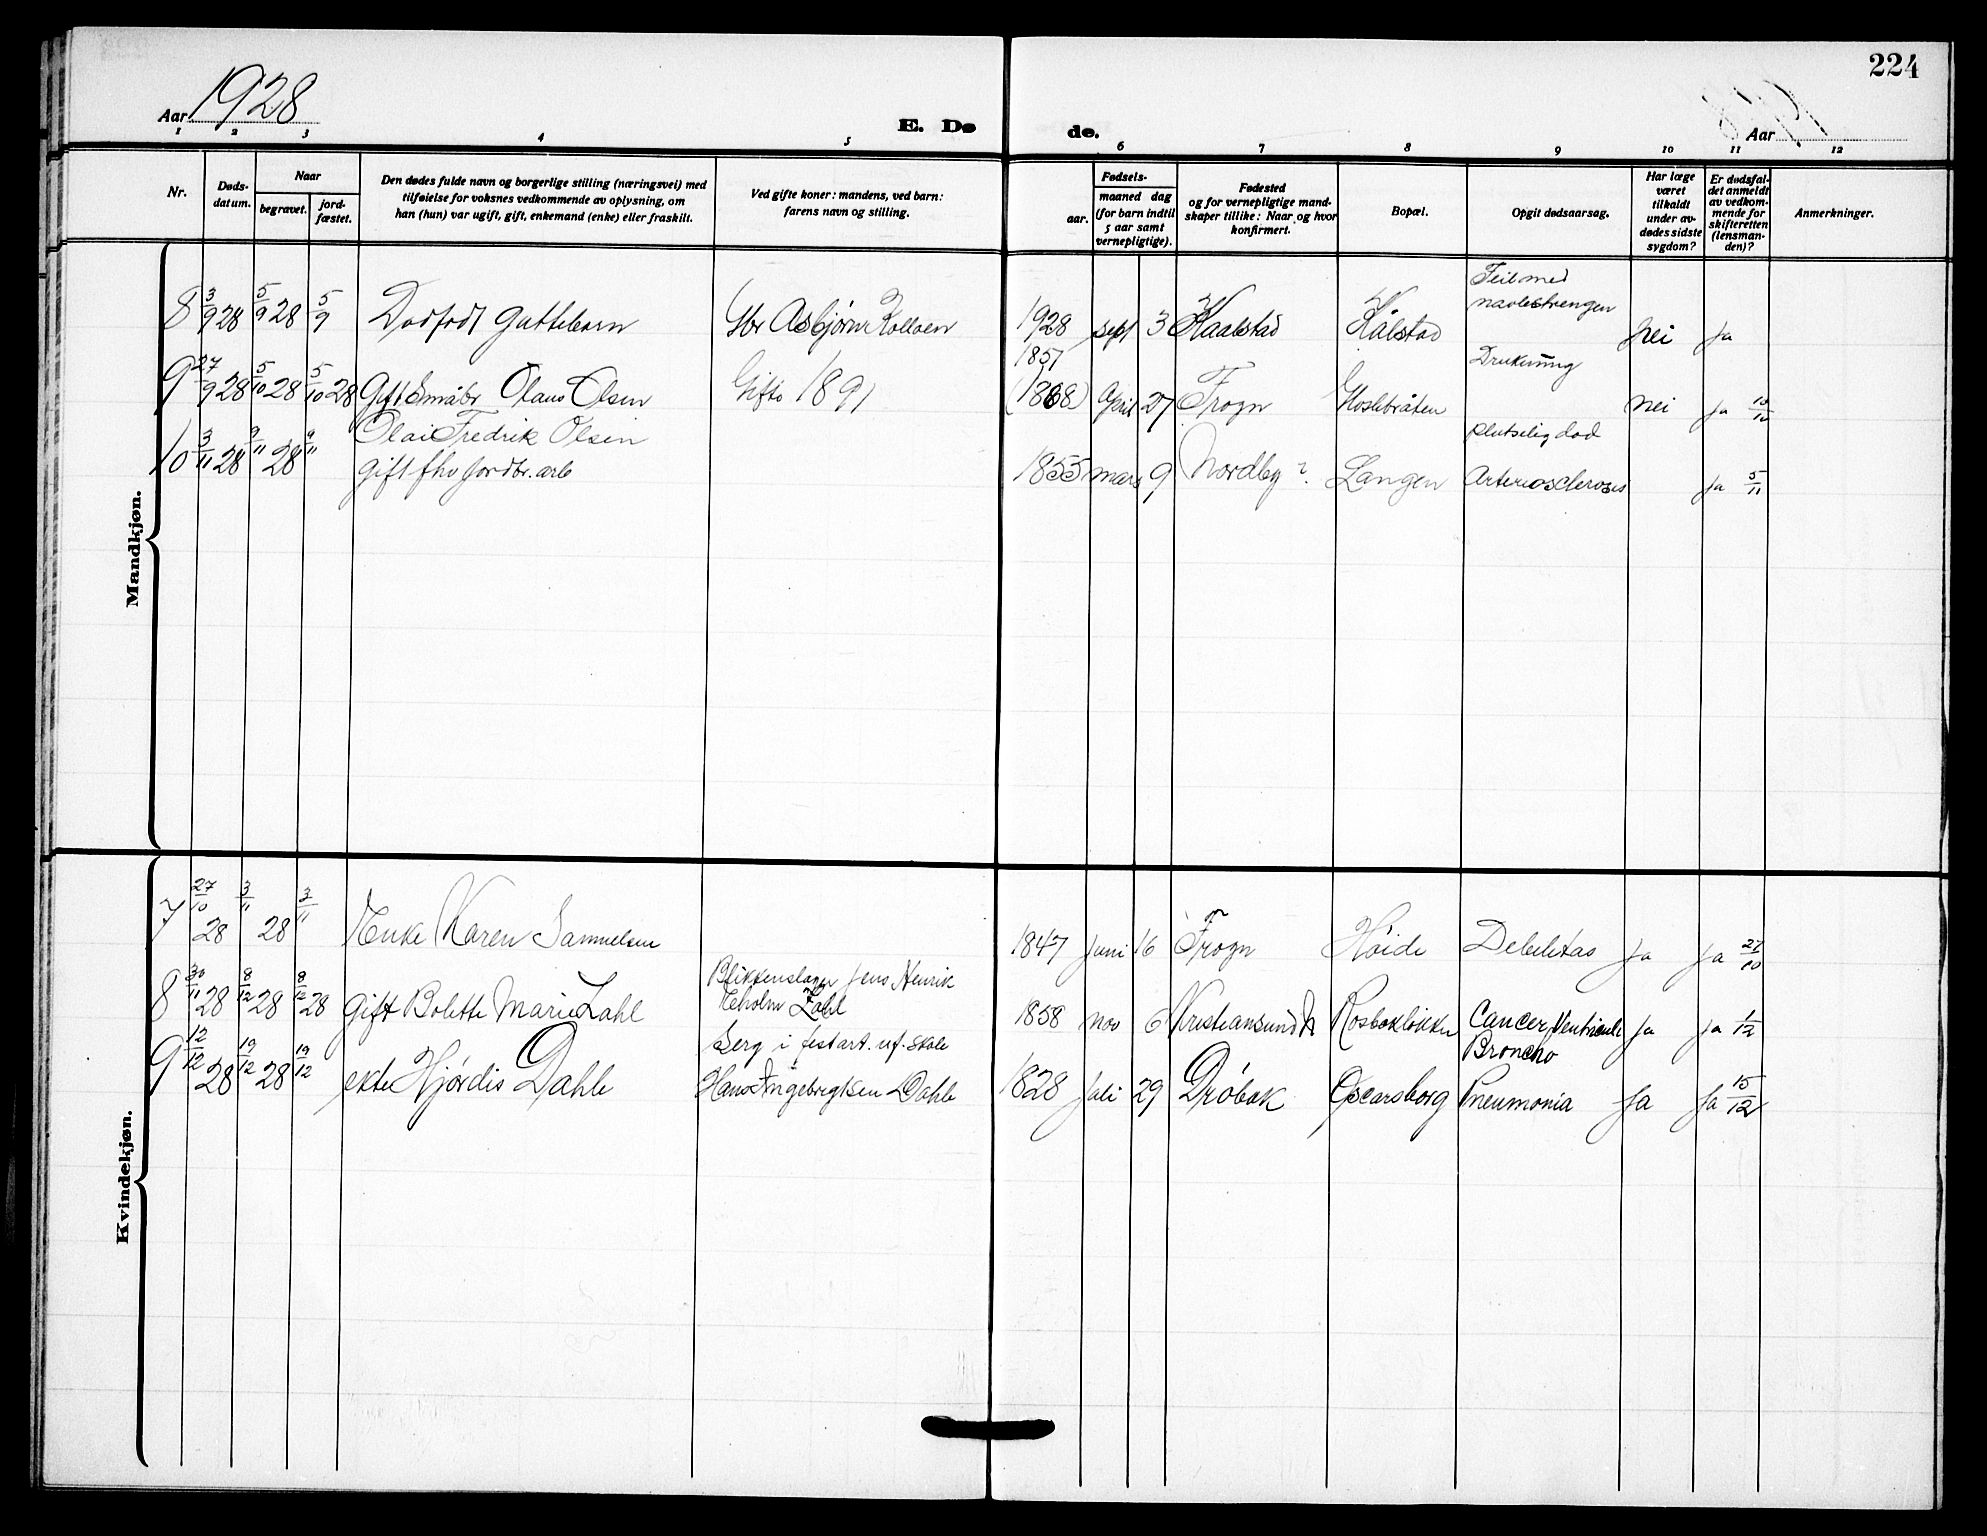 224
Aar 1928
E. Dø
de.
Aar
1 2 3 4 5 6 7 8 9 10 11 12
Nr.
Døds-
datum.
Naar
begravet.
jord-
fæstet.
Den dødes fulde navn og borgerlige stilling (næringsvei) med
tilføielse for voksnes vedkommende av oplysning, om
han (hun) var ugift, gift, enkemand (enke) eller fraskilt.
Ved gifte koner: mandens, ved barn:
farens navn og stilling.
Fødsels-
aar.
maaned dag
(for barn indtil
5 aar samt
vernepligtige).
Fødested
og for vernepligtige mand-
skaper tillike: Naar og hvor
konfirmert.
Bopæl.
Opgit dødsaarsag.
Har læge
været
tilkaldt
under av-
dødes sidste
sygdom?
Er dødsfal-
det anmeldt
av vedkom-
mende for
skifteretten
(lensman-
den)?
Anmerkninger.
Mandkjøn.
Feil med
navlestrengen
8 3/9 28 5/9 28 5/9 Dødfødt guttebarn Gbr Asbjørn Kolloen 1928 sept 3 Kaalstad Kålstad nei ja
1857
Drukning
9 27/9 28 5/10 28 5/10 28 Gift Småbr Olaus Olsen Gift 1891 (1868) April 27 Frogn nei ja
Olai Fredrik Olsen
plutselig død
10 3/11 28 9/11 28 9/11 gift fhv jordbr. arb 1855 mars 9 Nordby ? Langen Arteriosclerosis ja 5/11
Kvindekjøn.
7 27/10 28 3/11 28 3/11 Enke Karen Samuelsen 1847 Juni 16 Frogn Höide Debilitas Ja Ja 27/10
Blikkenslager Jens Henrik
8 30/11 28 8/12 28 8/12 28 Gift Bolette Marie Zahl Ekholm Zahl 1858 nov 6 Kristiansund N Cancer Ventriculi Ja ja 1/12
Serg i festart. uf. skole
Broncho
9 12/12 28 19/12 28 19/12 ekte Hjördis Dahle Hans Ingebregtsen Dahle 1828 Juli 29 Dröbak Oscarsborg Pneumonia Ja Ja 15/12